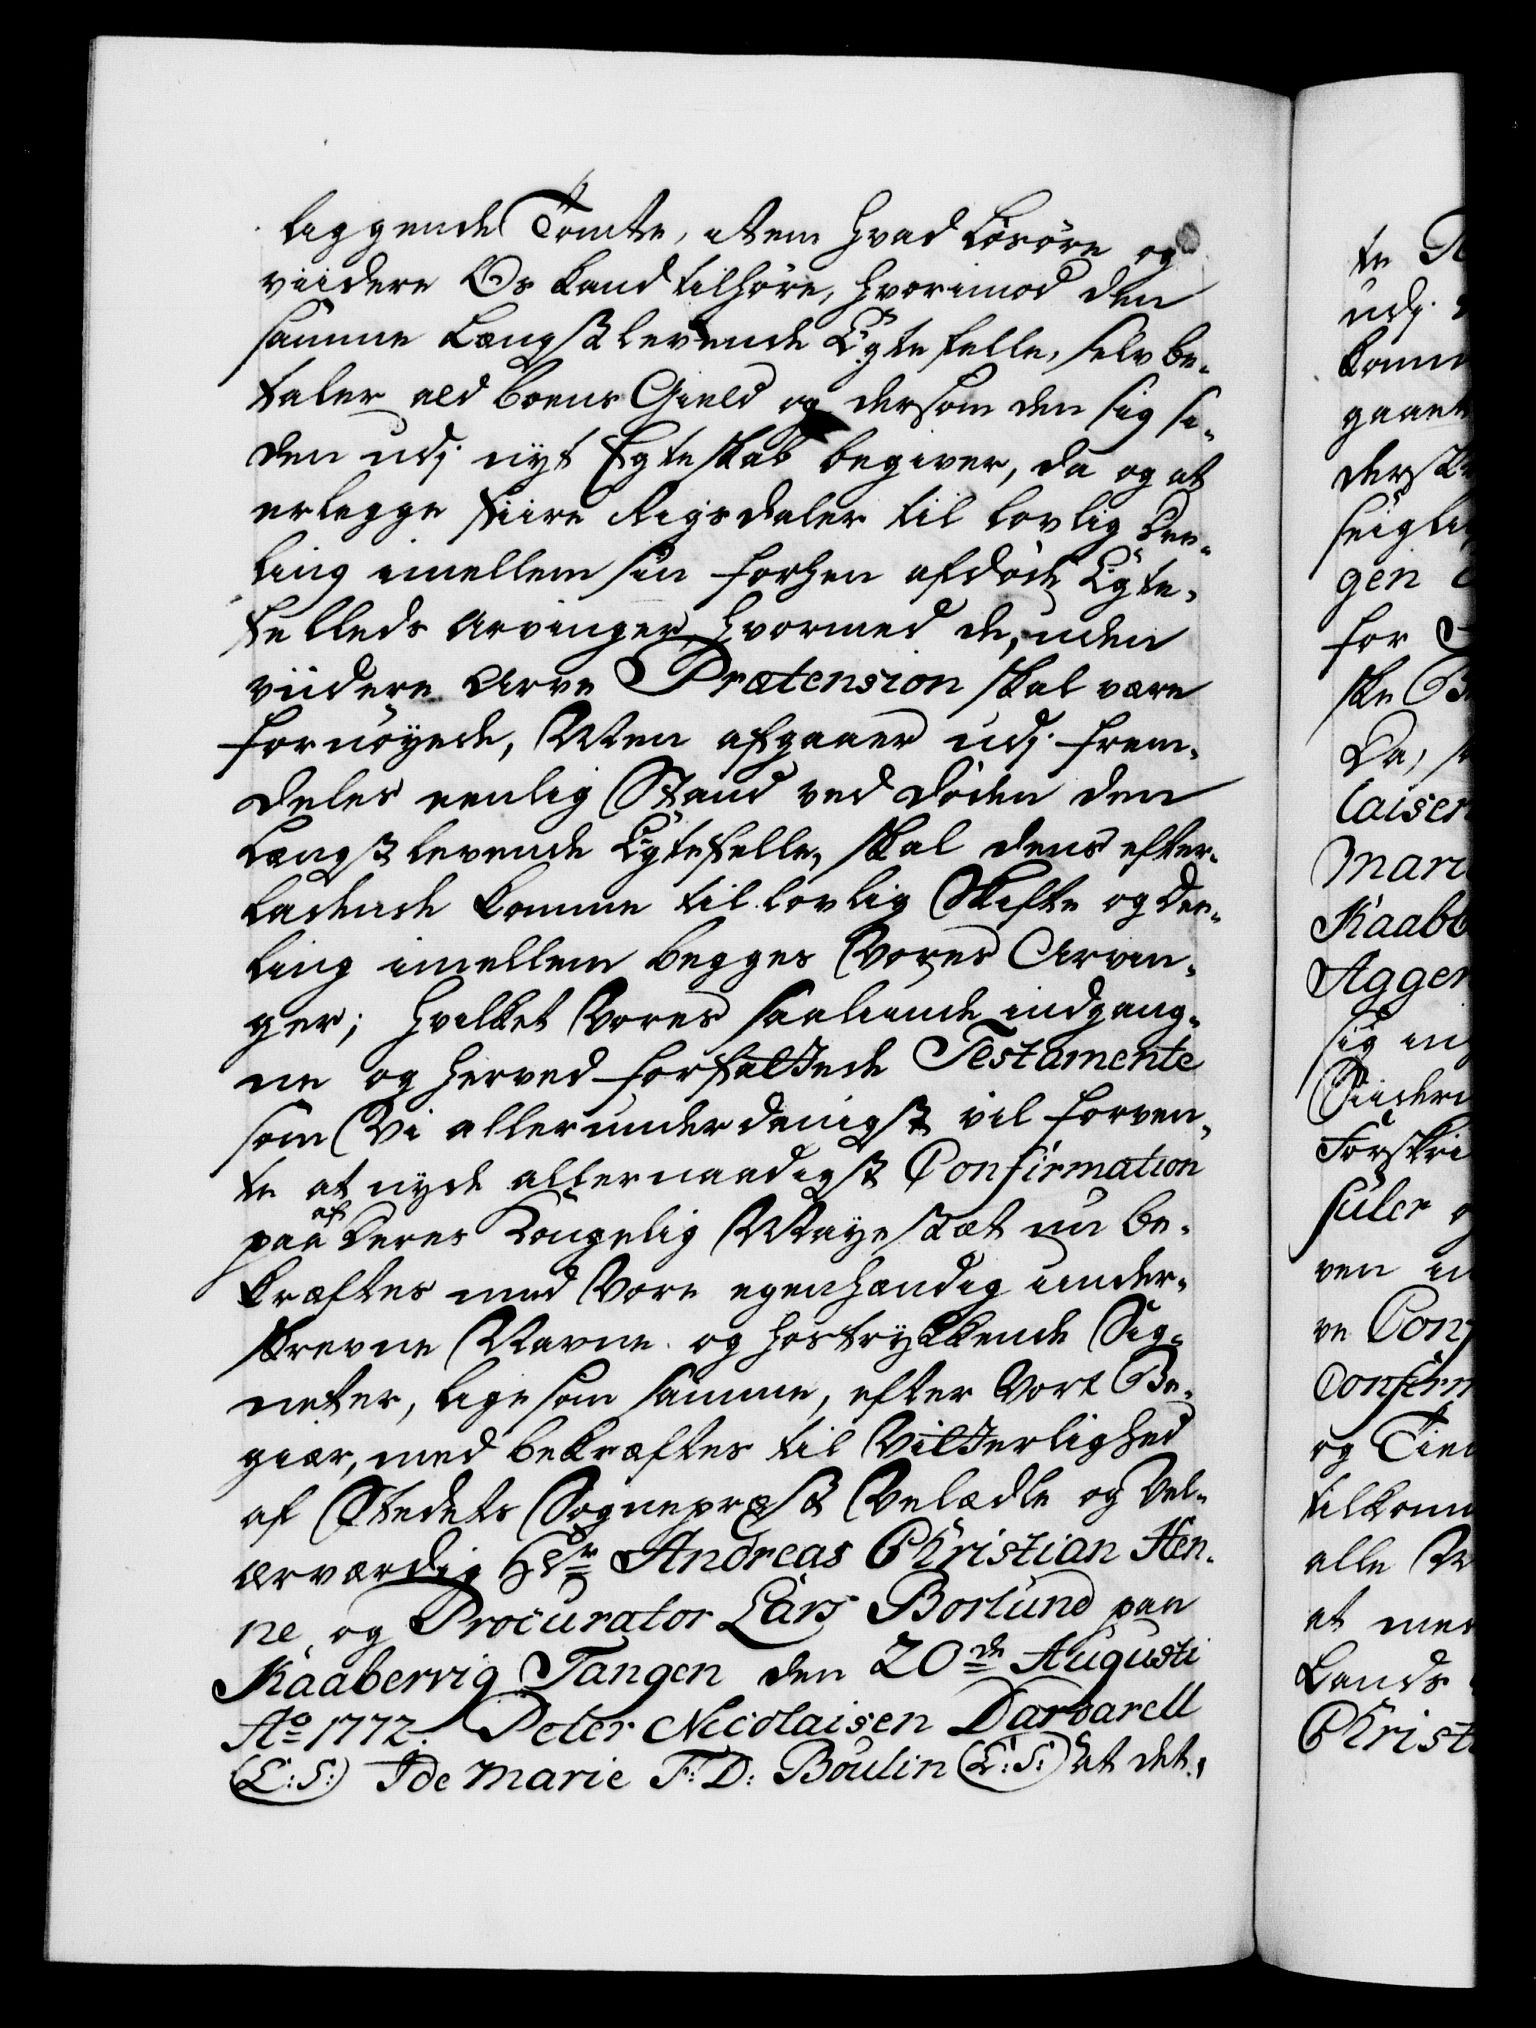 liggende Tomte, item hvad Løsøre og
viidere Os kand tilhøre, hvorimod den
samme Længstlevende Egtefelle, selv be-
taler ald boens Gield og dersom den sig si-
den udj nyt Egteskab begiver, da og at
erlegge fiire Rigsdaler til lovlig Dee-
ling imellem sin forhen afdøde Egte-
felleds Arvinger, hvormed de, uden
viidere Arve Prætension skal være
fornøyede, Men afgaaer udj frem-
deles eenlig Stand ved døden den
Længstlevende Egtefelle, skal dens efter-
ladende komme til lovlig Skifte og dee-
ling imellem begges Vores Arvin-
ger; hvilket Vores saaliunde indgang-
ne og herved forfattede Testamente
som Vi allerunderdanigst vil forven-
te at nyde allernaadigst Confirmation
paa af Deres Kongelig Mayestæt nu be-
kræftes med Vore egenhændig under-
skrevne Navne og hostrykkende Sig-
neter, ligesom samme, efter Vort Be-
giær, med bekræftes til Vitterlighed
af Stedets Sognepræst Velædle og Vel-
ærværdig Hr Andreas Christian Hen-
ne, og Procurator Lars Borlund paa
Kaabervig Tangen den 20de Augusti
Ao 1772. Peter Nicolaisen Darbarell
(L:S:) Ide Marie F: D: Boulin (L:S:) at det,
te
udj
komm
gaaen
derske
seigla
gen
for
ske Be
Da,
laisen
Mari
Kaabe
Agger
sig in
Siider
Forskri
suler o
ven in
ve Conf
Confirm
og Tien
tilkom
alle
at med
Lands
Christi